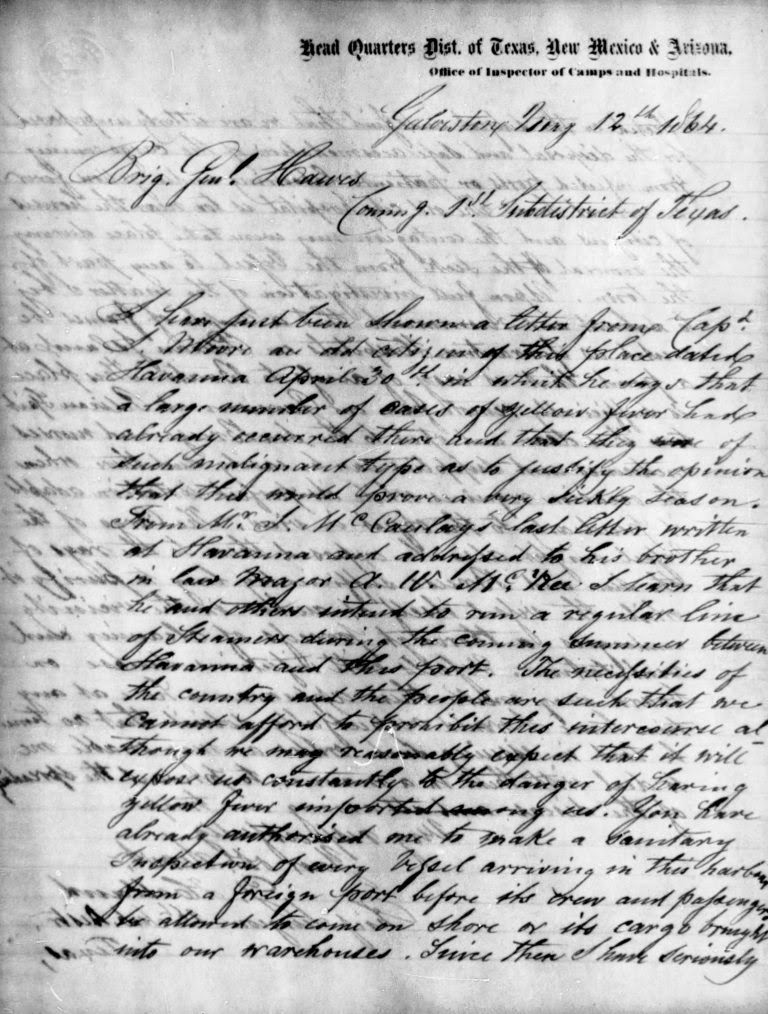 Head Quarters Dist. of Texas, New Mexico & Arizona,
Office of Inspector of Camps and Hospitals.
Galveston May 12th 1864.
Brig. Genl. Hawes
Commg. 1st Subdistrict of Texas.
I have just been shown a letter from Capt.
Moore an old citizen of this place dated
Havanna April 30th in which he says that
a large number of cases of yellow fever had
already occurred there and that they were of
such malignant type as to justify the opinion
that this would prove a very sickly season.
From Mr. McCaulay's last letter written
at Havanna and addressed to his brother
in law Major A. W. McKee I learn that
he and others intend to run a regular line
of Steamers during the coming summer between
Havanna and this port. The necessities of
the country and the people are such that we
cannot afford to prohibit this intercourse al-
though we may reasonably expect that it will
expose us constantly to the danger of having
yellow fever imported among us. You have
already authorised me to make a sanitary
inspection of every vessel arriving in this harbor
from a foreign port before its crew and passengers
be allowed to come on shore or its cargo brought
into our warehouses. Since then I have seriously